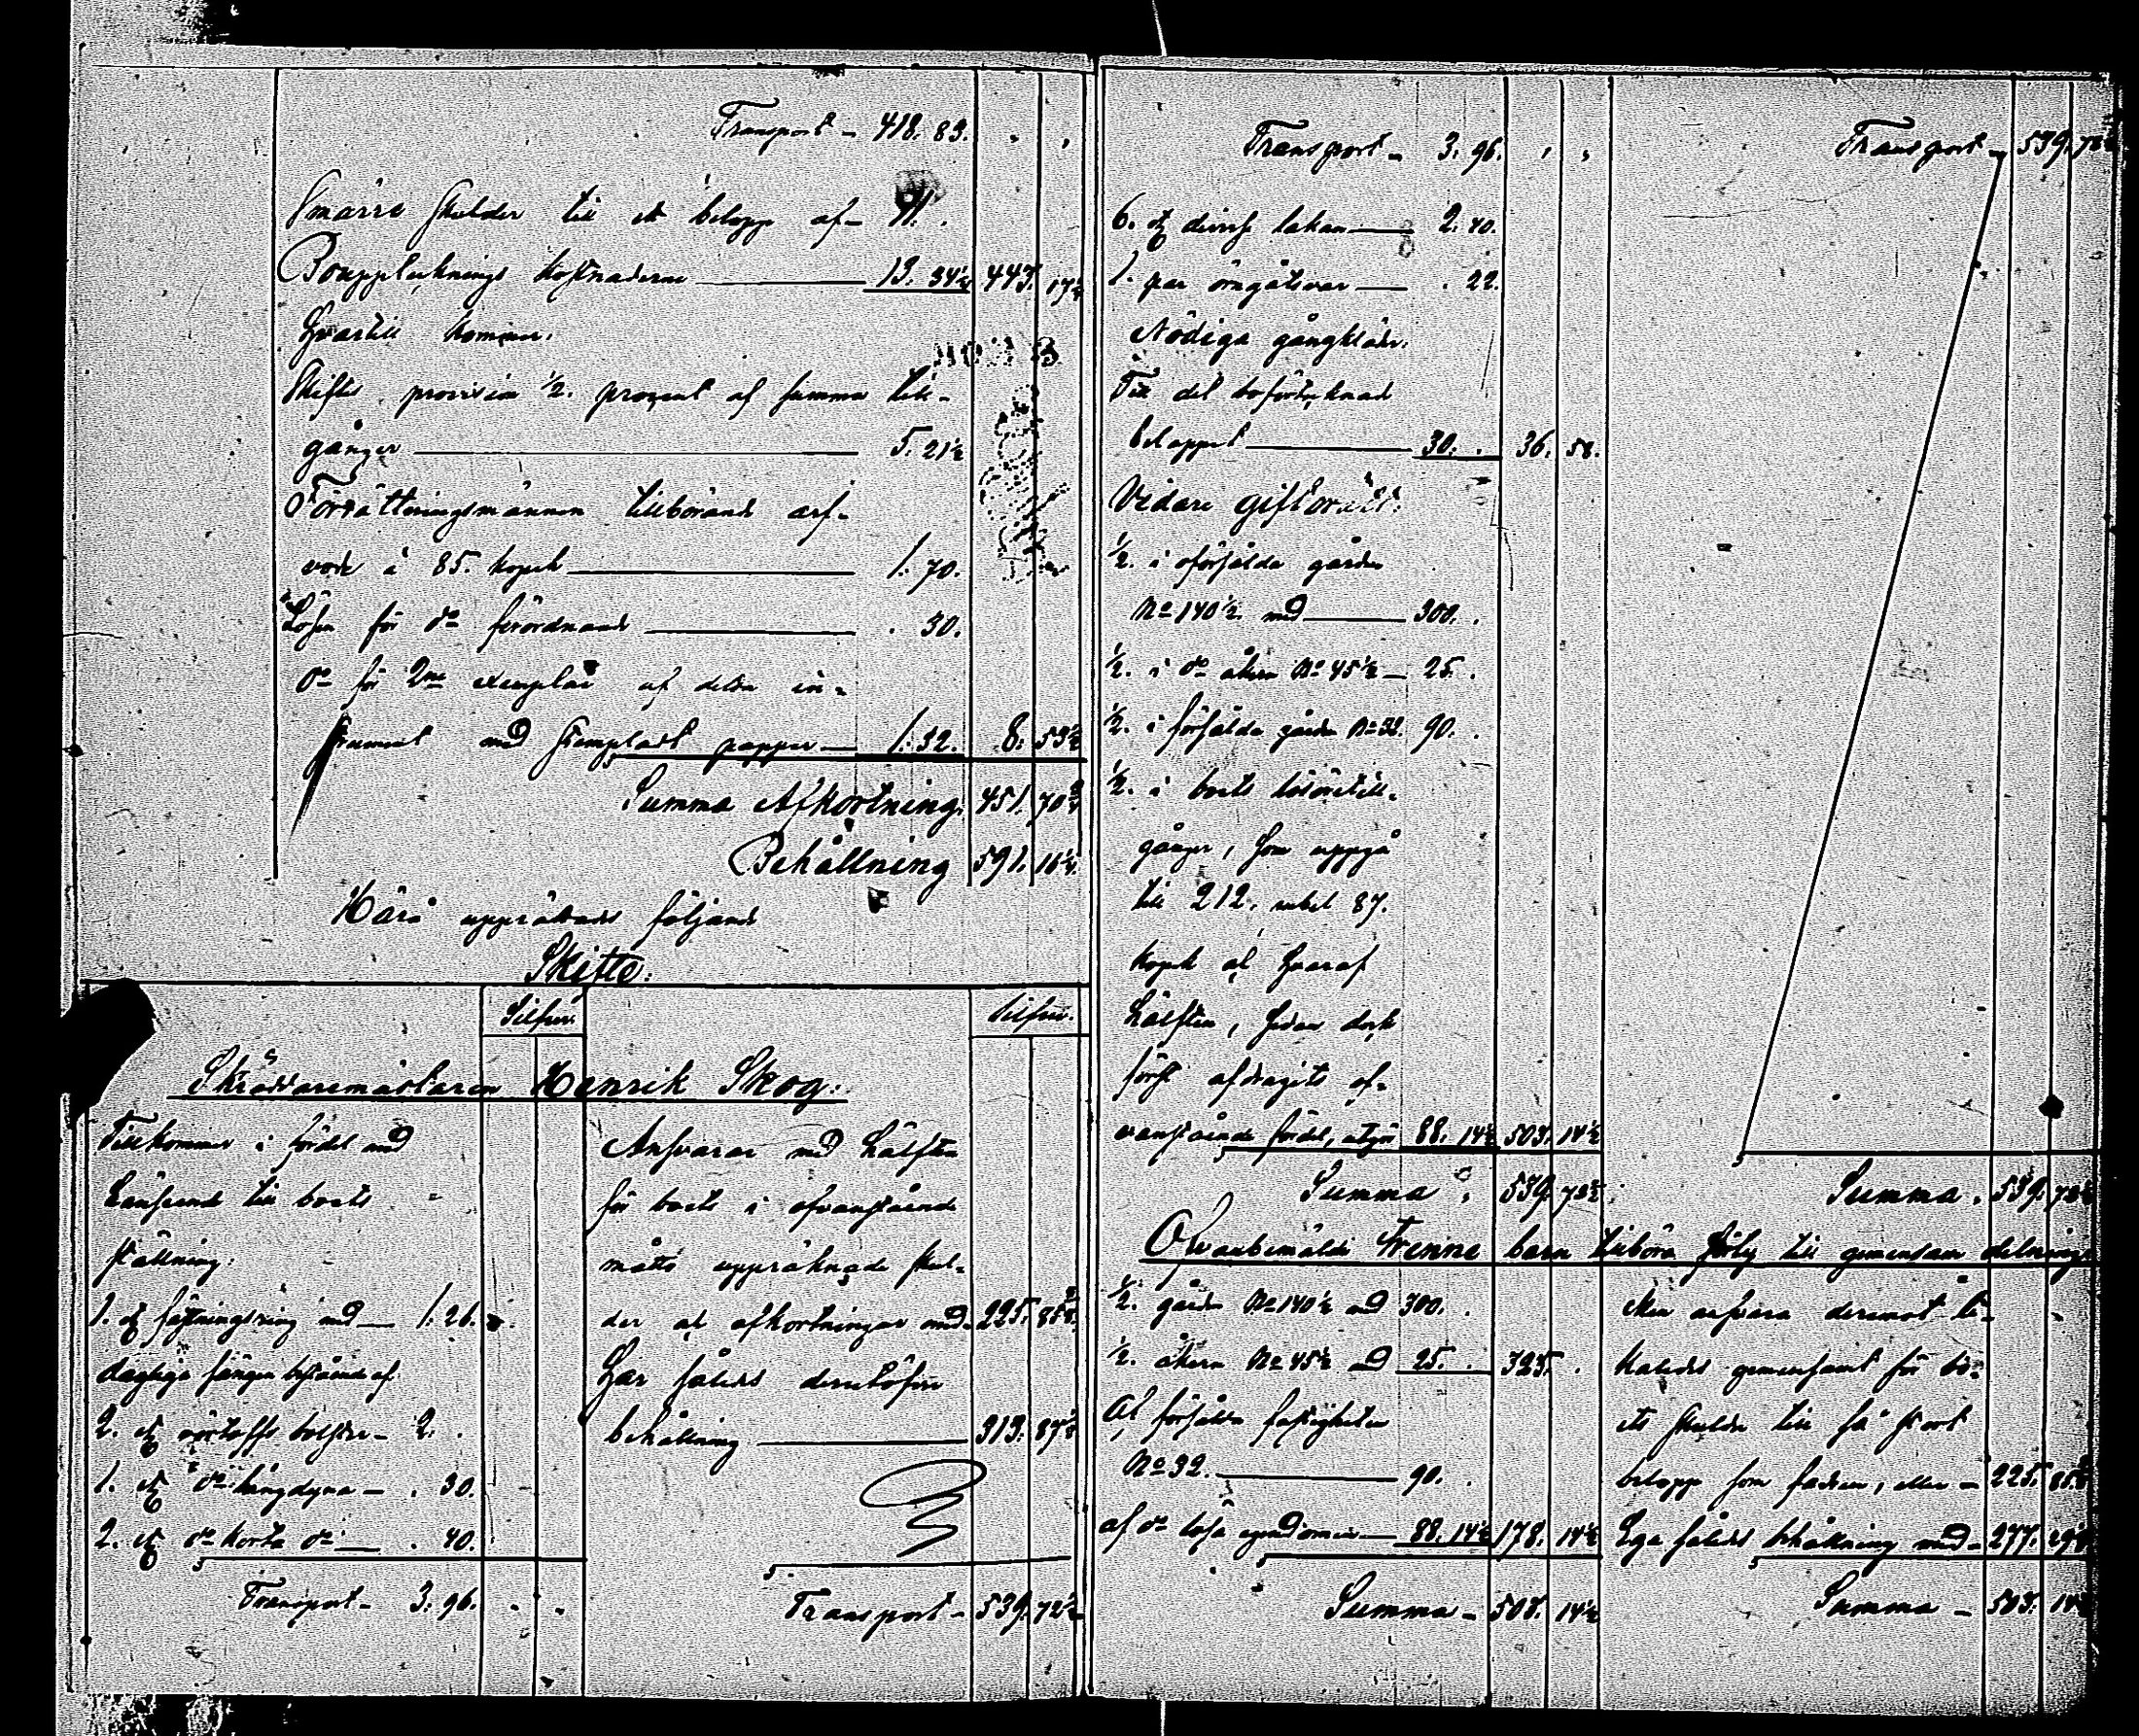 Transport - 418. 83. " "
Smärre skulder till ett belopp af - 11. .
Bouppteknings kostnaderne 13. 34½ 443. 17½
Hvartill kommer:
Skiftes provision ½. procent af summa till-
gångar 5. 21½
Förrättningsmännen tillkommande arf-
vode à 85. kopek 1. 70.
Lösen för do förordnande . 30.
do för 2ne exemplar af detta in-
strument med stämpladt papper 1. 32. 8. 53½
Summa Afkortning. 451. 70¾
Behållning 591. 16¼
Härå upprättades följande
Skifte:
Silfver. Silfver.
Skräddaremästaren Henrik Skog.
Tillkommer i fördel med
hänseende till boets
ställning:
1. st fästningsring med 1. 26.
dagliga sängen bestående af
2. st bolster - 2. .
1. st do långdyna - . 30.
2. st do korta do . 40.
Transport - 3. 96. " "
Ansvarar med hälften
för boets i ofvanstående
måtto uppräknade skul-
der och afkortningar med 225. 85
Har således derutöfver
behållning 313. 87
Transport - 539. 72½
Transport - 3. 96. " "
6. st diverse lakan 2. 40.
1. par örngåtsvar . 22.
Nödiga gångkläder:
Till det
beloppet 30. . 36. 58.
Vidare giftorätt:
½. i oförsålda gården
No 140½. med 300. .
½. i do åkern No 45½ 25. .
½. i försålda gården No 32. 90. .
½. i boets lösöretill-
gångar, som uppgå
till 212. rubel 87.
kopek och hvaraf
hälften, sedan dock
först afdragits of-
vanstående fördel, utgör 88. 14½ 503. 14½
Summa . 539. 72½
Transport 539. 72½
Summa . 539. 72½
Ofvanbemälde Trenne barn tillhöra till gemensam delning:
½. gården No 140½ med 300. .
½. åkern No 45½ med 25. . 325. .
Af försålda fastigheten
No 32. 90. .
af do lösa egendomen 88. 14½ 178. 14½
Summa - 503. 14½
Men ansvara deremot li-
kaledes gemensamt för bo-
ets skulder till så stort
belopp som fadren, eller - 225. 85
Ega således behållning med 277. 29
Summa - 503. 14½